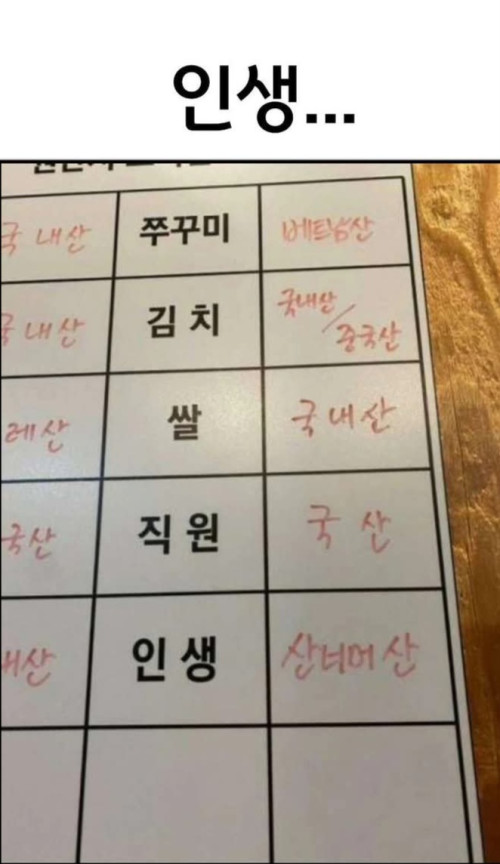 인생...
국내산 쭈꾸미 베트남산
국내산 김치 국내산/중국산
쌀 국내산
국산 직원 국산
인생 산너머산